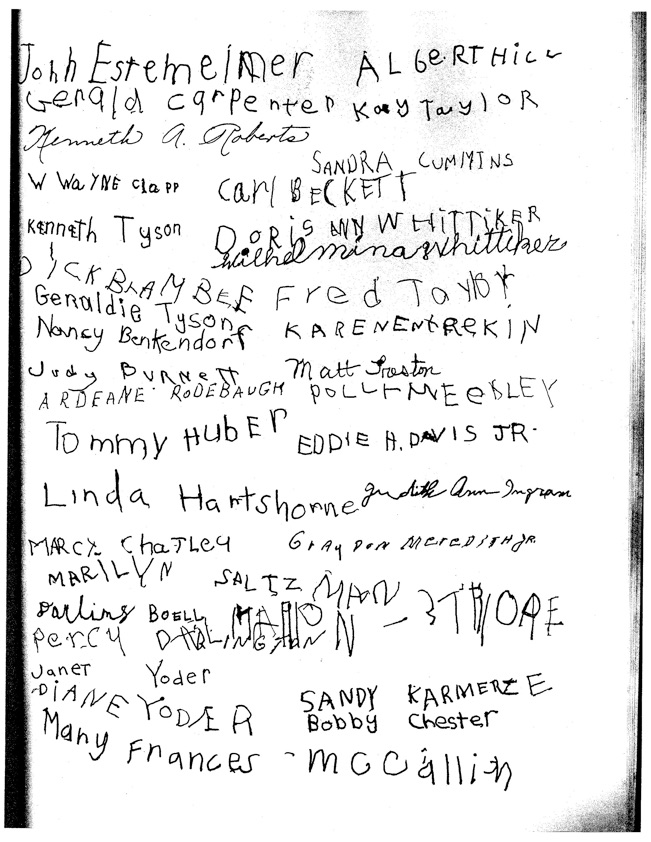 John Estemelmer ALbeRT HiLL
Gerald carpenter Kay TaylOR
Kenneth A. Roberts
SANDRA CUMMINS
W WaYNE Clapp Carl BECKETT
Kenneth Tyson DORIS ANN WHITTIKER
wilhelmina whittiker
DICK BLAMBEE Fred Taylor
Geraldie Tyson
Nancy Benkendorf KARENENtREKIN
Judy BURNETT Matt Froston
ARDEANE RODEBAUGH POLLY NEEDLEY
Tommy HUBER EDDIE H. DAVIS JR.
Linda Hartshorne Judith Ann Ingram
MARCY ChaTLey GRAYDON MEREDITH JR.
MARILYN SALTZMAN
Darling BOELL
PERCY DARLINGTON
Janet Yoder
DIANE YODER SANDY KARMERZE
Bobby Chester
Many Frances - McCallin